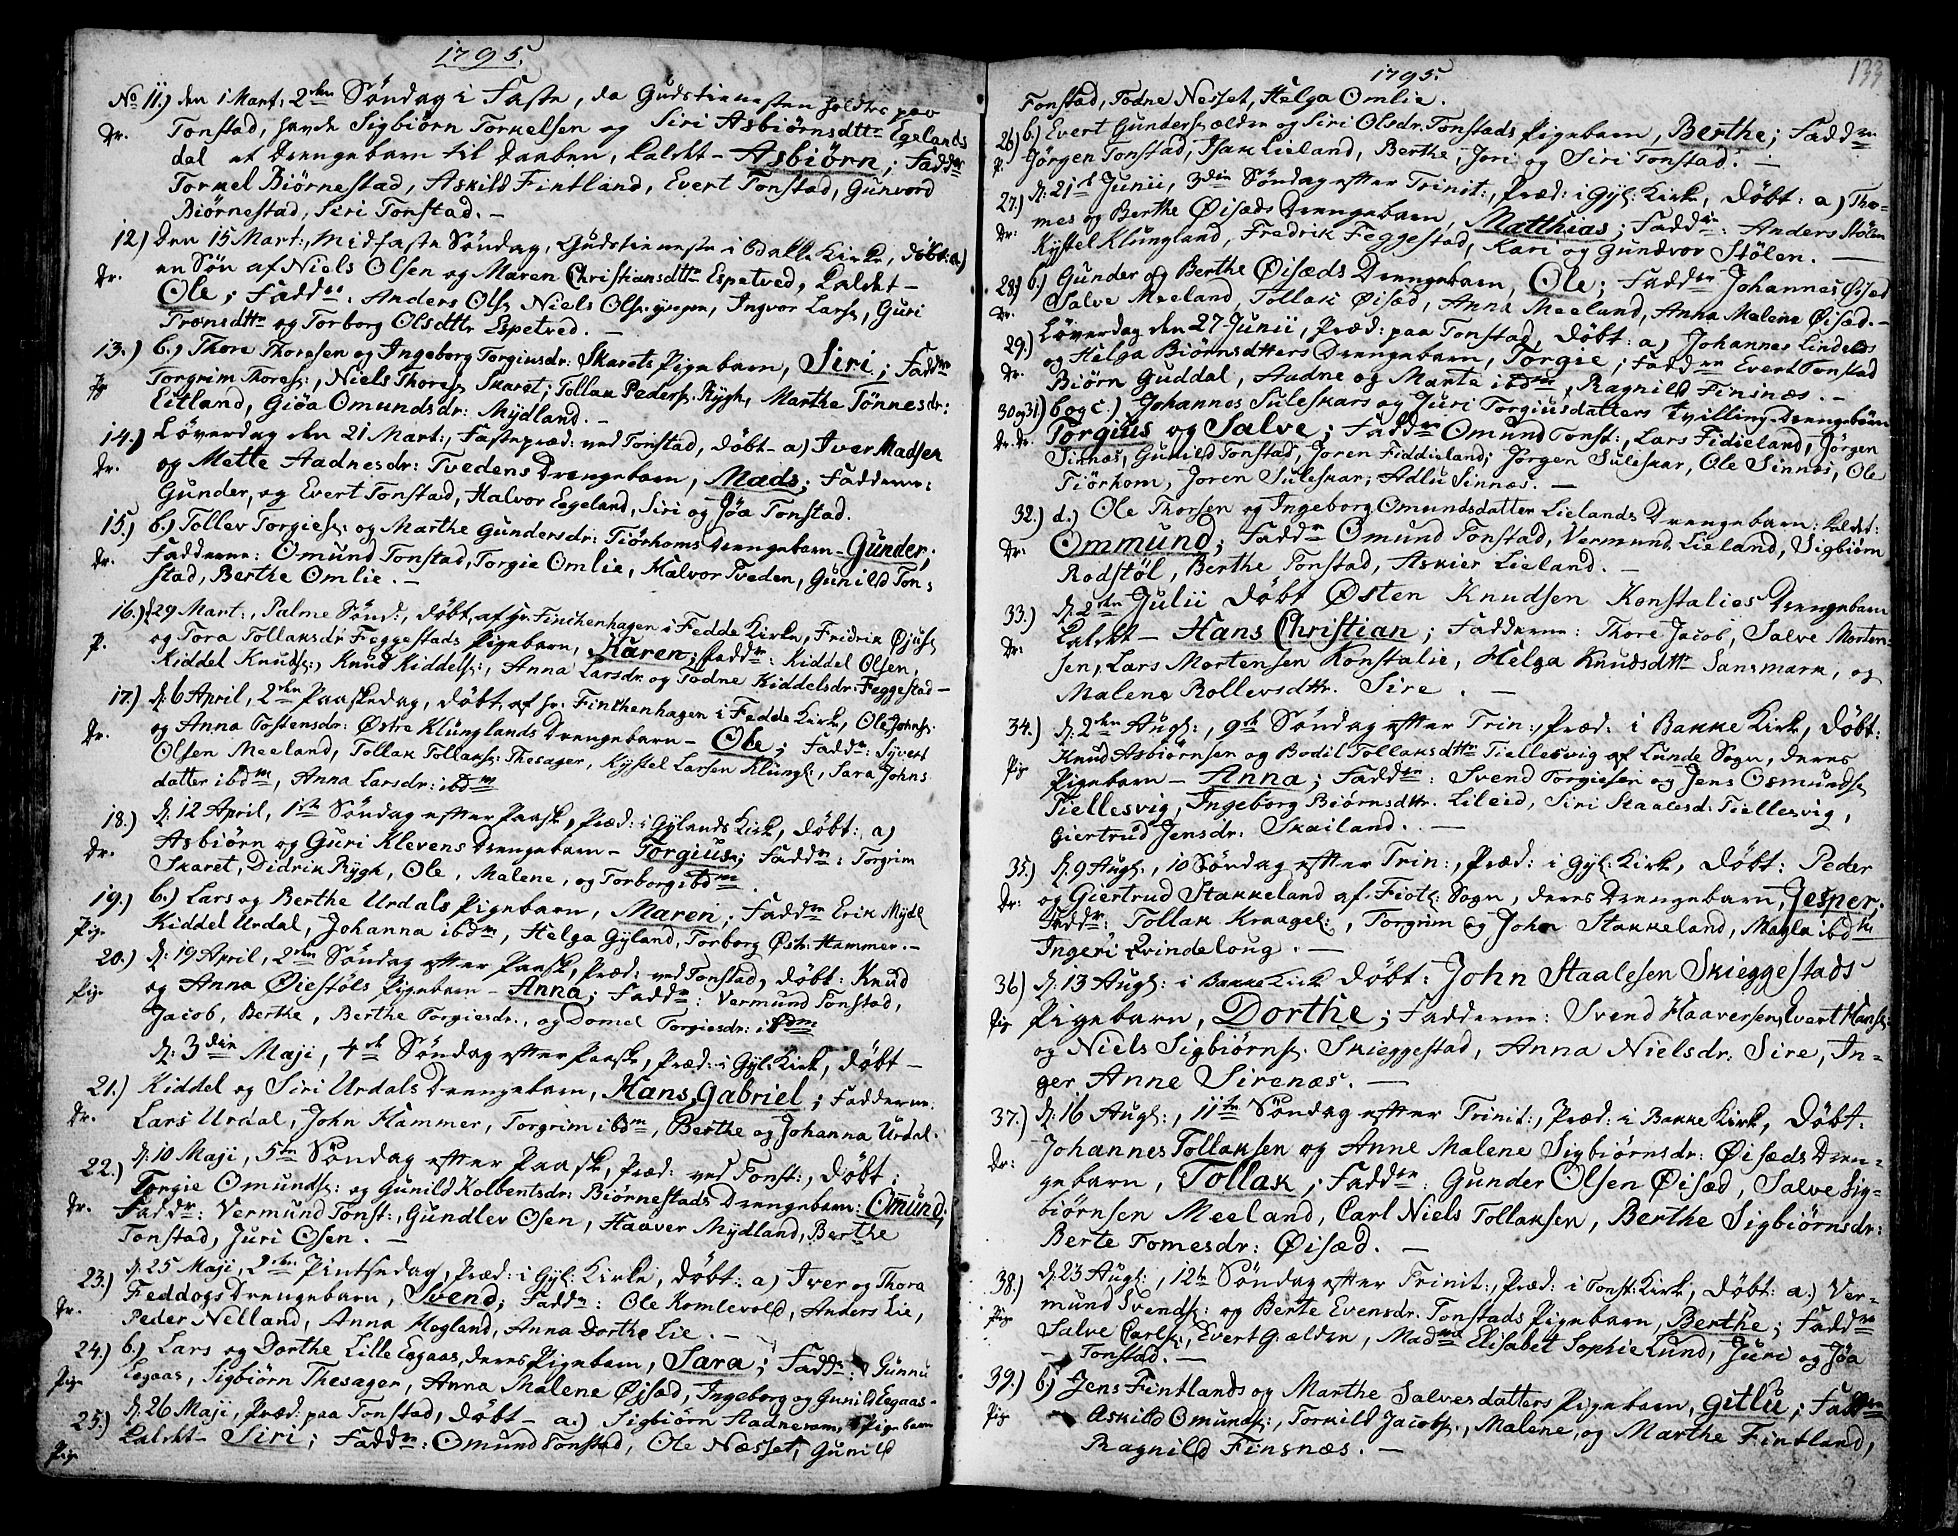 1795.
No 11.) den 1 Mart: 2den Søndag i Faste, da Gudstienesten holdtes paa
Dr. Tonstad, havde Sigbiørn Torkelsen og Siri Asbiørnsdttr Egelands
dal et Drengebarn til Daaben, kaldet - Asbiørn; Faddr
Torkel Biørnestad, Askild Fintland, Evert Tonstad, Gunvord
Biørnestad, Siri Tonstad. -
12.) Den 15 Mart:, Midfaste Søndag, Gudstieneste i Bakke Kirke, døbt: a)
Dr. en Søn af Niels Olsen og Maren Christiansdttr Espetved, kaldet -
Ole; Faddr: Anders Ols: Niels Ols: Ingvor Lars:, Guri
Tronsdttr og Torborg Olsdttr Espetved. -
13.) b.) Thore Thoresen og Ingeborg Torgiusdr: Skarets Pigebarn, Siri; Faddrr
Pg Torgrim Thores:, Niels Thores: Skaret; Tollak Peders: Rygh, Marthe Tønnesdr:
Eitland, Giøa Omundsdr: Mydland. -
14.) Løverdag den 21 Mart:, Fastepræd: ved Tonstad, døbt - a) Iver Madsen
Dr. og Mette Aadnesdr: Tvedens Drengebarn, Mads; Fadderne:
Gunder, og Evert Tonstad, Halvor Egeland, Siri og Jøa Tonstad.
15.) b.) Tollev Torgies: og Marthe Gundersdr: Tiørhoms Drengebarn - Gunder;
Dr. Fadderne: Omund Tonstad, Torgie Omlie, Halvor Tveden, Gunild Ton-
stad, Berthe Omlie. -
16.) d 29 Mart:, Palme Sønd:, døbt, af hr. Finckenhagen i Fedde Kirke, Fridrik Øjus:
P. og Tora Tollaksdr Feggestads Pigebarn, Karen; Faddrr: Kiddel Olsen,
Kiddel Knuds:, Knud Kiddels:, Anna Larsdr. og Todne Kiddelsdr: Feggestad -
17.) d: 6 April, 2den Paaskedag, døbt af hr. Finckenhagen i Fedde Kirk, Ole Johns:
Dr. og Anna Tostensdr: Østre Klunglands Drengebarn - Ole; Faddr: Sivert
Olsen Meeland, Tollak Tollaks: Thesager, Kystel Larsen Klungl:, Sara Johns
datter ibdm, Anna Larsdr: ibdm
18.) d: 12 April, 1ste Søndag efter Paask, Præd: i Gylands Kirk, døbt: a)
Dr. Asbiørn og Guri Klevens Drengebarn - Torgius; Faddrr: Torgrim
Skaret, Didrik Rygh, Ole, Malene, og Torborg ibdm.
19.) b.) Lars og Berthe Urdals Pigebarn, Maren; Faddrr Erik Mydl
Pig. Kiddel Urdal, Johanna ibdm, Helga Gyland, Torborg Østr: Hammer. -
20.) d: 19 April, 2den Søndag efter Paask, Præd: ved Tonstad, døbt: Knud
Pig. og Anna Øiestøls Pigebarn - Anna; Faddr: Vermund Tonstad,
Jacob, Berthe, Berthe Torgiesdr:, og Domel Torgiesdr: ibdm
d: 3die Maji, 4de Søndag efter Paask, Præd: i Gyl: Kirk, døbt -
21.) Kiddel og Siri Urdals Drengebarn, Hans Gabriel; Fadderne:
Dr. Lars Urdal, John Hammer, Torgrim ibdm, Berthe og Johanna Urdal.
d: 10 Maji, 5te Søndag efter Paask, Præd: ved Tonst:, døbt:
22.) Torgie Omunds: og Gunild Kolbentsdr: Biørnestads Drengebarn: Omund;
Dr. Faddr: Vermund Tonst:, Gundlev Osen, Haaver Mydland, Berthe
Tonstad, Juri Osen. -
d: 25 Maji, 2den Pintsedag, Præd: i Gyl: Kirke, døbt: a) Iver og Thora
23.) Feddogs Drengebarn, Svend; Faddr: Ole Komlevold, Anders Lie,
Dr. Peder Nelland, Anna Mogland, Anna Dorthe Lie. -
24.) b.) Lars og Dorthe Lille Eegaas, deres Pigebarn, Sara; Fadds: Gunnu
Pig. Eegaas, Sigbiørn Thesager, Anna Malene Øjsæd, Ingeborg og Gunild Eegaas. -
25.) d: 26 Maji, Præd: paa Tonstad, døbt - a.) Sigbiørn Aadnerams Pigebarn
Pig. kaldet - Siri; Faddrr: Omund Tonstad, Ole Næsset, Gunild
133
1795.
Tonstad, Todne Nesset, Helga Omlie.
26) b.) Evert Gunders: ælder og Siri Olsdr: Tonstads Pigebarn, Berthe; Faddrr
P. Jørgen Tonstad, Isak Lieland, Berthe, Jori og Siri Tonstad. -
27.) d: 21de Junii, 3die Søndag efter Trinit:, Præd: i Gyl: Kirk, døbt: a) Tho-
Dr: mes og Berthe Øisæds Drengebarn, Matthias; Faddrr: Anders Stølen
Kystel Klungland, Fredrik Feggestad, Kari og Gundvor Stølen. -
28.) b.) Gunder og Berthe Øisæds Drengebarn, Ole; Faddrr Johannes Øisæd
Dr. Salve Meeland, Tollak Øisæd, Anna Meeland, Anna Malene Øisæd. -
29.) Løverdag den 27 Junii, Præd: paa Tonstad, døbt: a) Johannes Lindelds
Dr. og Helga Biørnsdtters Drengebarn, Torgie; Faddrr Evert Tonstad
Biørn Guddal, Aadne og Marte ibdm, Ragnild Finsnes. -
30 og 31.) b og c.) Johannes Suleskars og Juri Torgiusdatters Tvilling Drengebørn
Dr. Dr. Torgius og Salve; Faddrr Omund Tonst:, Lars Fidieland, Jørgen
Sinnes, Gunild Tonstad, Joren Fiddieland; Jørgen Suleskar, Ole Sinnes, Ole
Tiørhom, Joren Suleskar, Adlu Sinnes. -
32.) d.) Ole Thorsen og Ingeborg Omundsdatter Lielands Drengebarn: kaldet:
Dr: Ommund; Faddr Omund Tonstad, Vermund Lieland, Sigbiørn
Rodstøl, Berthe Tonstad, Askier Lieland. -
33.) d: 2den Julii Døbt Østen Knudsen Konstalies Drengebarn
Dr: kaldet - Hans Christian; Fadderne: Thore Jacob, Salve Morten-
sen, Lars Mortensen Konstalie, Helga Knudsdttr Sansmark, og
Malene Rollevsdttr. Sire. -
34.) d: 2den Augs:, 9de Søndag efter Trin:, Præd: i Bakke Kirk, døbt:
Knud Asbiørnsen og Bodil Tollaksdttr Tiellesvig af Lunde Sogn, deres
Pig Pigebarn - Anna; Faddrr: Svend Torgiesen og Jens Osmunds:
Tiellesvig, Ingeborg Biørnsdttr. Lileid, Siri Staalesd: Tiellesvig,
Giertrud Jensdr: Skailand. -
35.) d: 9 Augs:, 10 Søndag efter Trin:, Præd: i Gyl: Kirk, døbt: Peder
Dr: og Giertrud Stakkeland af Fiotl: Sogn, deres Drengebarn, Jesper.
Faddr: Tollak Kraagel:, Torgrim og John Stakkeland, Magla ibdm
Ingeri Qvindeloug. -
36.) d: 13 Augs: i Bakke Kirk døbt: John Staalesen Skieggestads
Pig Pigebarn, Dorthe; Fadderne: Svend Haaversen, Evert Hans:
og Niels Sigbiørns: Skieggestad, Anna Nielsdr: Sire, In-
ger Anne Sirenæs. -
37.) d: 16 Augs:, 11te Søndag efter Trinit:, Præd: i Bakke Kirk, døbt:
Dr: Johannes Tollaksen og Anne Malene Sigbiørnsdr: Øisæds Dren-
gebarn, Tollak; Faddrr: Gunder Olsen Øisæd, Salve Sig-
biørnsen Meeland, Carl Niels Tollaksen, Berthe Sigbiørnsdr:
Berte Tomesdr: Øisæd. -
38.) d: 23 Augs:, 12te Søndag efter Trinit:, Præd: i Tonst: Kirk, døbt: a.) Ver-
Pig mund Svends: og Berte Evensdr. Tonstads Pigebarn, Berthe; Faddrr
Salve Carls:, Evert G. ælden, Madme Elisabet Sophie Lund, Juri og Jøa
- Tonstad. -
39.) b.) Jens Fintlands og Marthe Salvesdatters Pigebarn, Gitlu; Faddrr
Pig Askild Omunds:, Torkild Jacobs:, Malene, og Marthe Fintland,
Ragnild Finsnæs. -